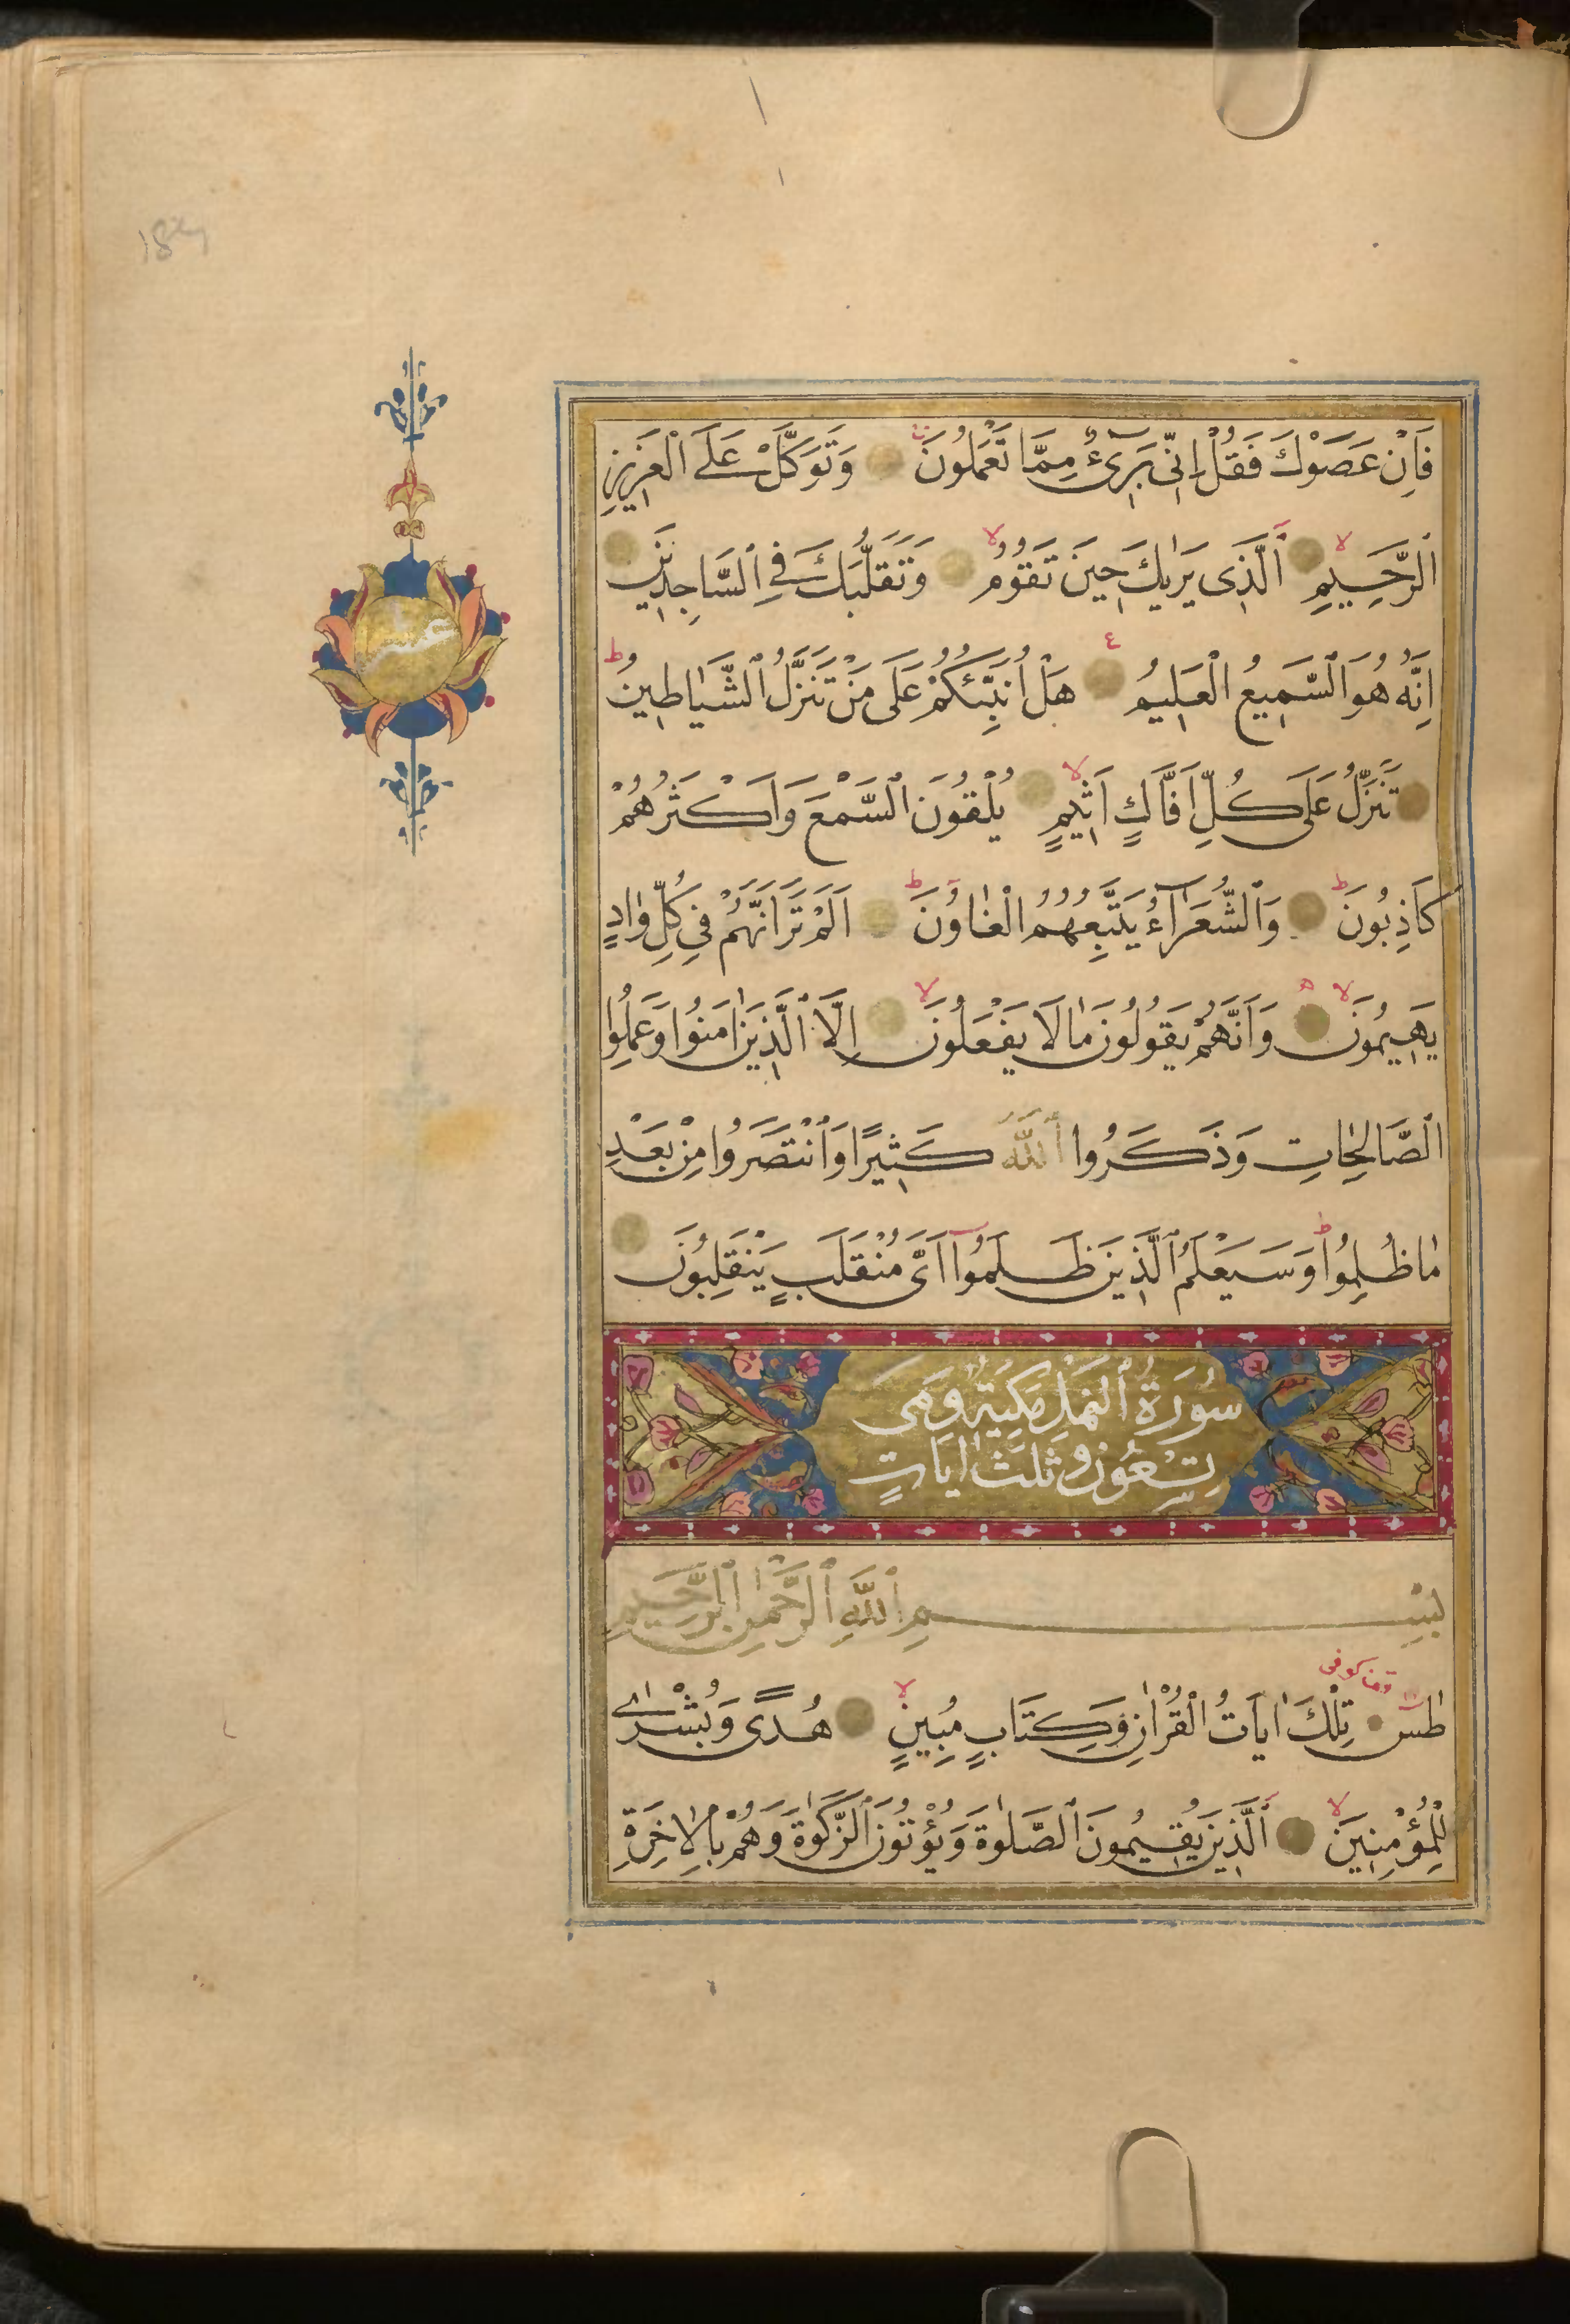 فَاِنْ عَصَوْكَ فَقُلْ اِنّٖى بَرٖىءٌ مِمَّا تَعْمَلُونَ وَتَوَكَّلْ عَلَى الْعَزٖيزِ
الرَّحٖيمِ اَلَّذٖى يَرٰيكَ حٖينَ تَقُومُ وَتَقَلُّبَكَ فِى السَّاجِدٖينَ
اِنَّهُ هُوَ السَّمٖيعُ الْعَلٖيمُ هَلْ اُنَبِّئُكُمْ عَلٰى مَنْ تَنَزَّلُ الشَّيَاطٖينُ
تَنَزَّلُ عَلٰى كُلِّ اَفَّاكٍ اَثٖيمٍ يُلْقُونَ السَّمْعَ وَاَكْثَرُهُمْ
كَاذِبُونَ وَالشُّعَرَٓاءُ يَتَّبِعُهُمُ الْغَاوُنَ اَلَمْ تَرَ اَنَّهُمْ فٖى كُلِّ وَادٍ
يَهٖيمُونَ وَاَنَّهُمْ يَقُولُونَ مَا لَا يَفْعَلُونَ اِلَّا الَّذٖينَ اٰمَنُوا وَعَمِلُوا
الصَّالِحَاتِ وَذَكَرُوا اللّٰهَ كَثٖيرًا وَانْتَصَرُوا مِنْ بَعْدِ
مَا ظُلِمُوا وَسَيَعْلَمُ الَّذٖينَ ظَلَمُٓوا اَىَّ مُنْقَلَبٍ يَنْقَلِبُونَ
عشر
سُورَةُ النَّمْلِ مَكِّيَّةٌ وَهِىَ
تِسْعُونَ وَثَلٰثُ اٰيَاتٍ
بِسْمِ اللّٰهِ الرَّحْمٰنِ الرَّحٖيمِ
طٰسٓ تِلْكَ اٰيَاتُ الْقُرْاٰنِ وَكِتَابٍ مُبٖينٍ هُدًى وَبُشْرٰى
لِلْمُؤْمِنٖينَ اَلَّذٖينَ يُقٖيمُونَ الصَّلٰوةَ وَيُؤْتُونَ الزَّكٰوةَ وَهُمْ بِالْاٰخِرَةِ